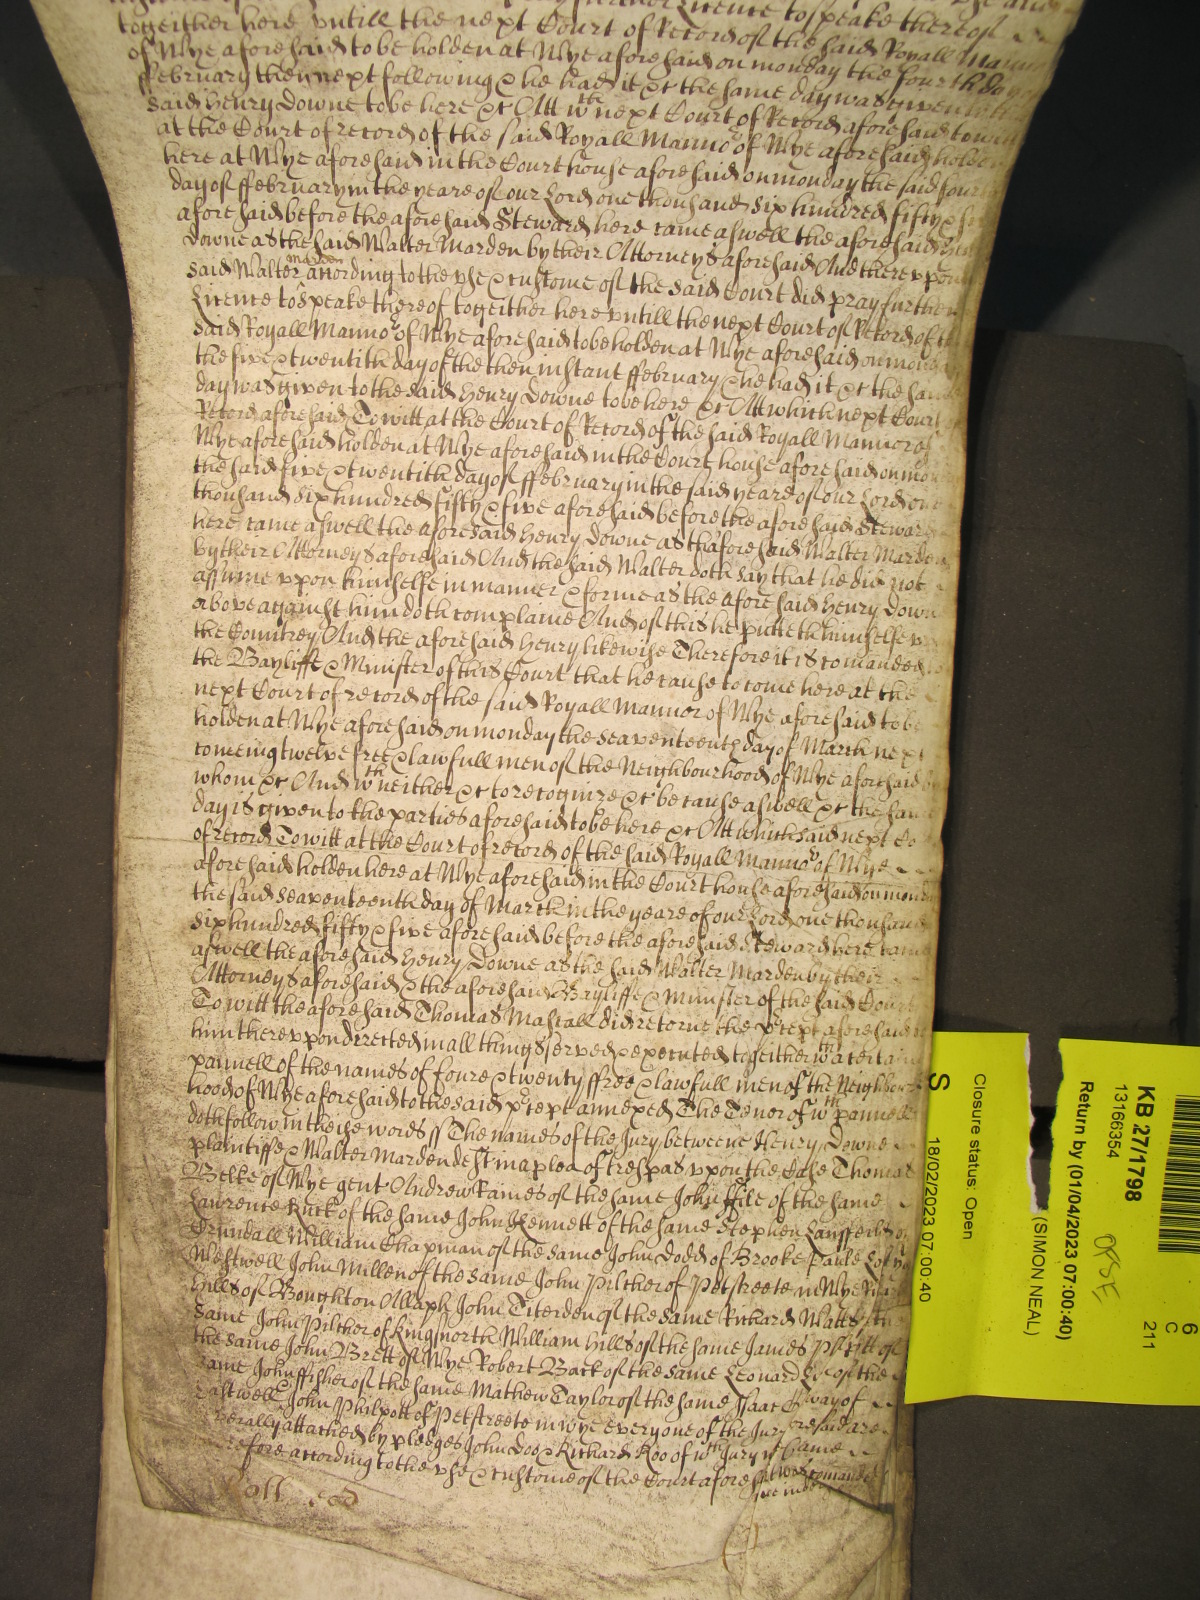 Licence to speake thereof
togeither here untill the next Court of Record of the said Royall Mann
of Wye aforesaid to be holden at Wye aforesaid on monday the fourth day
ffebruary then next following & he had it &c the same day was given to the
said Henry Downe to be here &c Att wth next Court of Record aforesaid towitt
at the Court of record of the said Royall Manno:r of Wye aforesaid holden
here at Wye aforesaid in the Court house aforesaid on monday the said fourth
day of ffebruary in the yeare of our Lord one thousand six hundred fifty &
aforesaid before the aforesaid Steward here came aswell the aforesaid Hen
Downe as the said Walter Marden by their Attorneys aforesaid And there upon
said Walter marden according to the use & custome of the said Court did pray further
Licence to speake thereof togeither here untill the next Court of Record of th
said Royall Manno:r of Wye aforesaid to be holden at Wye aforesaid on monday
the five & twentith day of the then instant ffebruary & he had it &c the same
day was given to the said Henry Downe to be here &c Att which next Court
Record aforesaid To witt at the Court of Record of the said Royall Mannor of
Wye aforesaid holden at Wye aforesaid in the Court house aforesaid on mon
the said five & twentith day of ffebruary in the said yeare of our Lord one
thousand six hundred fifty & five aforesaid before the aforesaid Steward
here came aswell the aforesaid Henry Downe as thaforesaid Walter Marden
by their Attorneys aforesaid And the said Walter doth say that he did not
assume upon himselfe in manner & forme as the aforesaid Henry Downe
above against him doth complaine And of this he putteth himselfe up
the Countrey And the aforesaid Henry likewise Therefore it is comanded
the Bayliffe & Minister of this Court that he cause to come here at the
next Court of record of the said Royall Mannor of Wye aforesaid to be
holden at Wye aforesaid on monday the seaventeenth day of March next
comeing twelve free & lawfull men of the Neighbourhood of Wye aforesaid by
whom &c And wth neither &c to recognize &c because aswell &c the same
day is given to the parties aforesaid to be here &c Att which said next Co
of record To witt at the Court of record of the said Royall Manno:r of Wye
aforesaid holden here at Wye aforesaid in the Court house aforesaid on mond
the said seaventeenth day of March in the yeare of our Lord one thousand
six hundred fifty & five aforesaid before the aforesaid Steward here came
aswell the aforesaid Henry Downe as the said Walter Marden by their
Attorneys aforesaid & the aforesaid Bayliffe & Minister of the said Court
To witt the aforesaid Thomas Mascall did retorne the precept aforesaid
him thereupon directed in all things served & executed togeither wth a certaine
pannell of the names of foure & twenty ffree & lawfull men of the Neighbour
hood of Wye aforesaid to the said precept annexed The Tenor of wch pannell
doth follow in these words ss The names of the Jury betweene Henry Downe
plaintiffe & Walter Marden deft in a plea of trespas upon the Case Thomas
Belke of Wye gent Andrew Raines of the same John ffile of the same
Laurence Ruck of the same John Kennett of the same Stephen of
Crundall William Chapman of the same John Dodd of Brooke Paule
Westwell John Miller of the same John Pilcher of Petstreete in Wye
Hills of Boughton Alaph John Titerden of the same Richard Watts
same John Pilcher of Kingsnorth William Hills of the same James of
the same John Brett of Wye Robert Back of the same Leonard of the
same John ffisher of the same Mathew Taylor of the same Isaac of
Eastwell John Philpott of Petstreete in Wye every one of the Jury aforesaid are
severally attached by pledges John Doo & Richard Roo of wth Jury
before according to the use & custome of the Court aforesaid
KB 27/1798
13166354
Return by (01/04/2023 07:00:40)
(SIMON NEAL)
Closure status: Open
18/02/2023 07:00:40
S
6
C
211